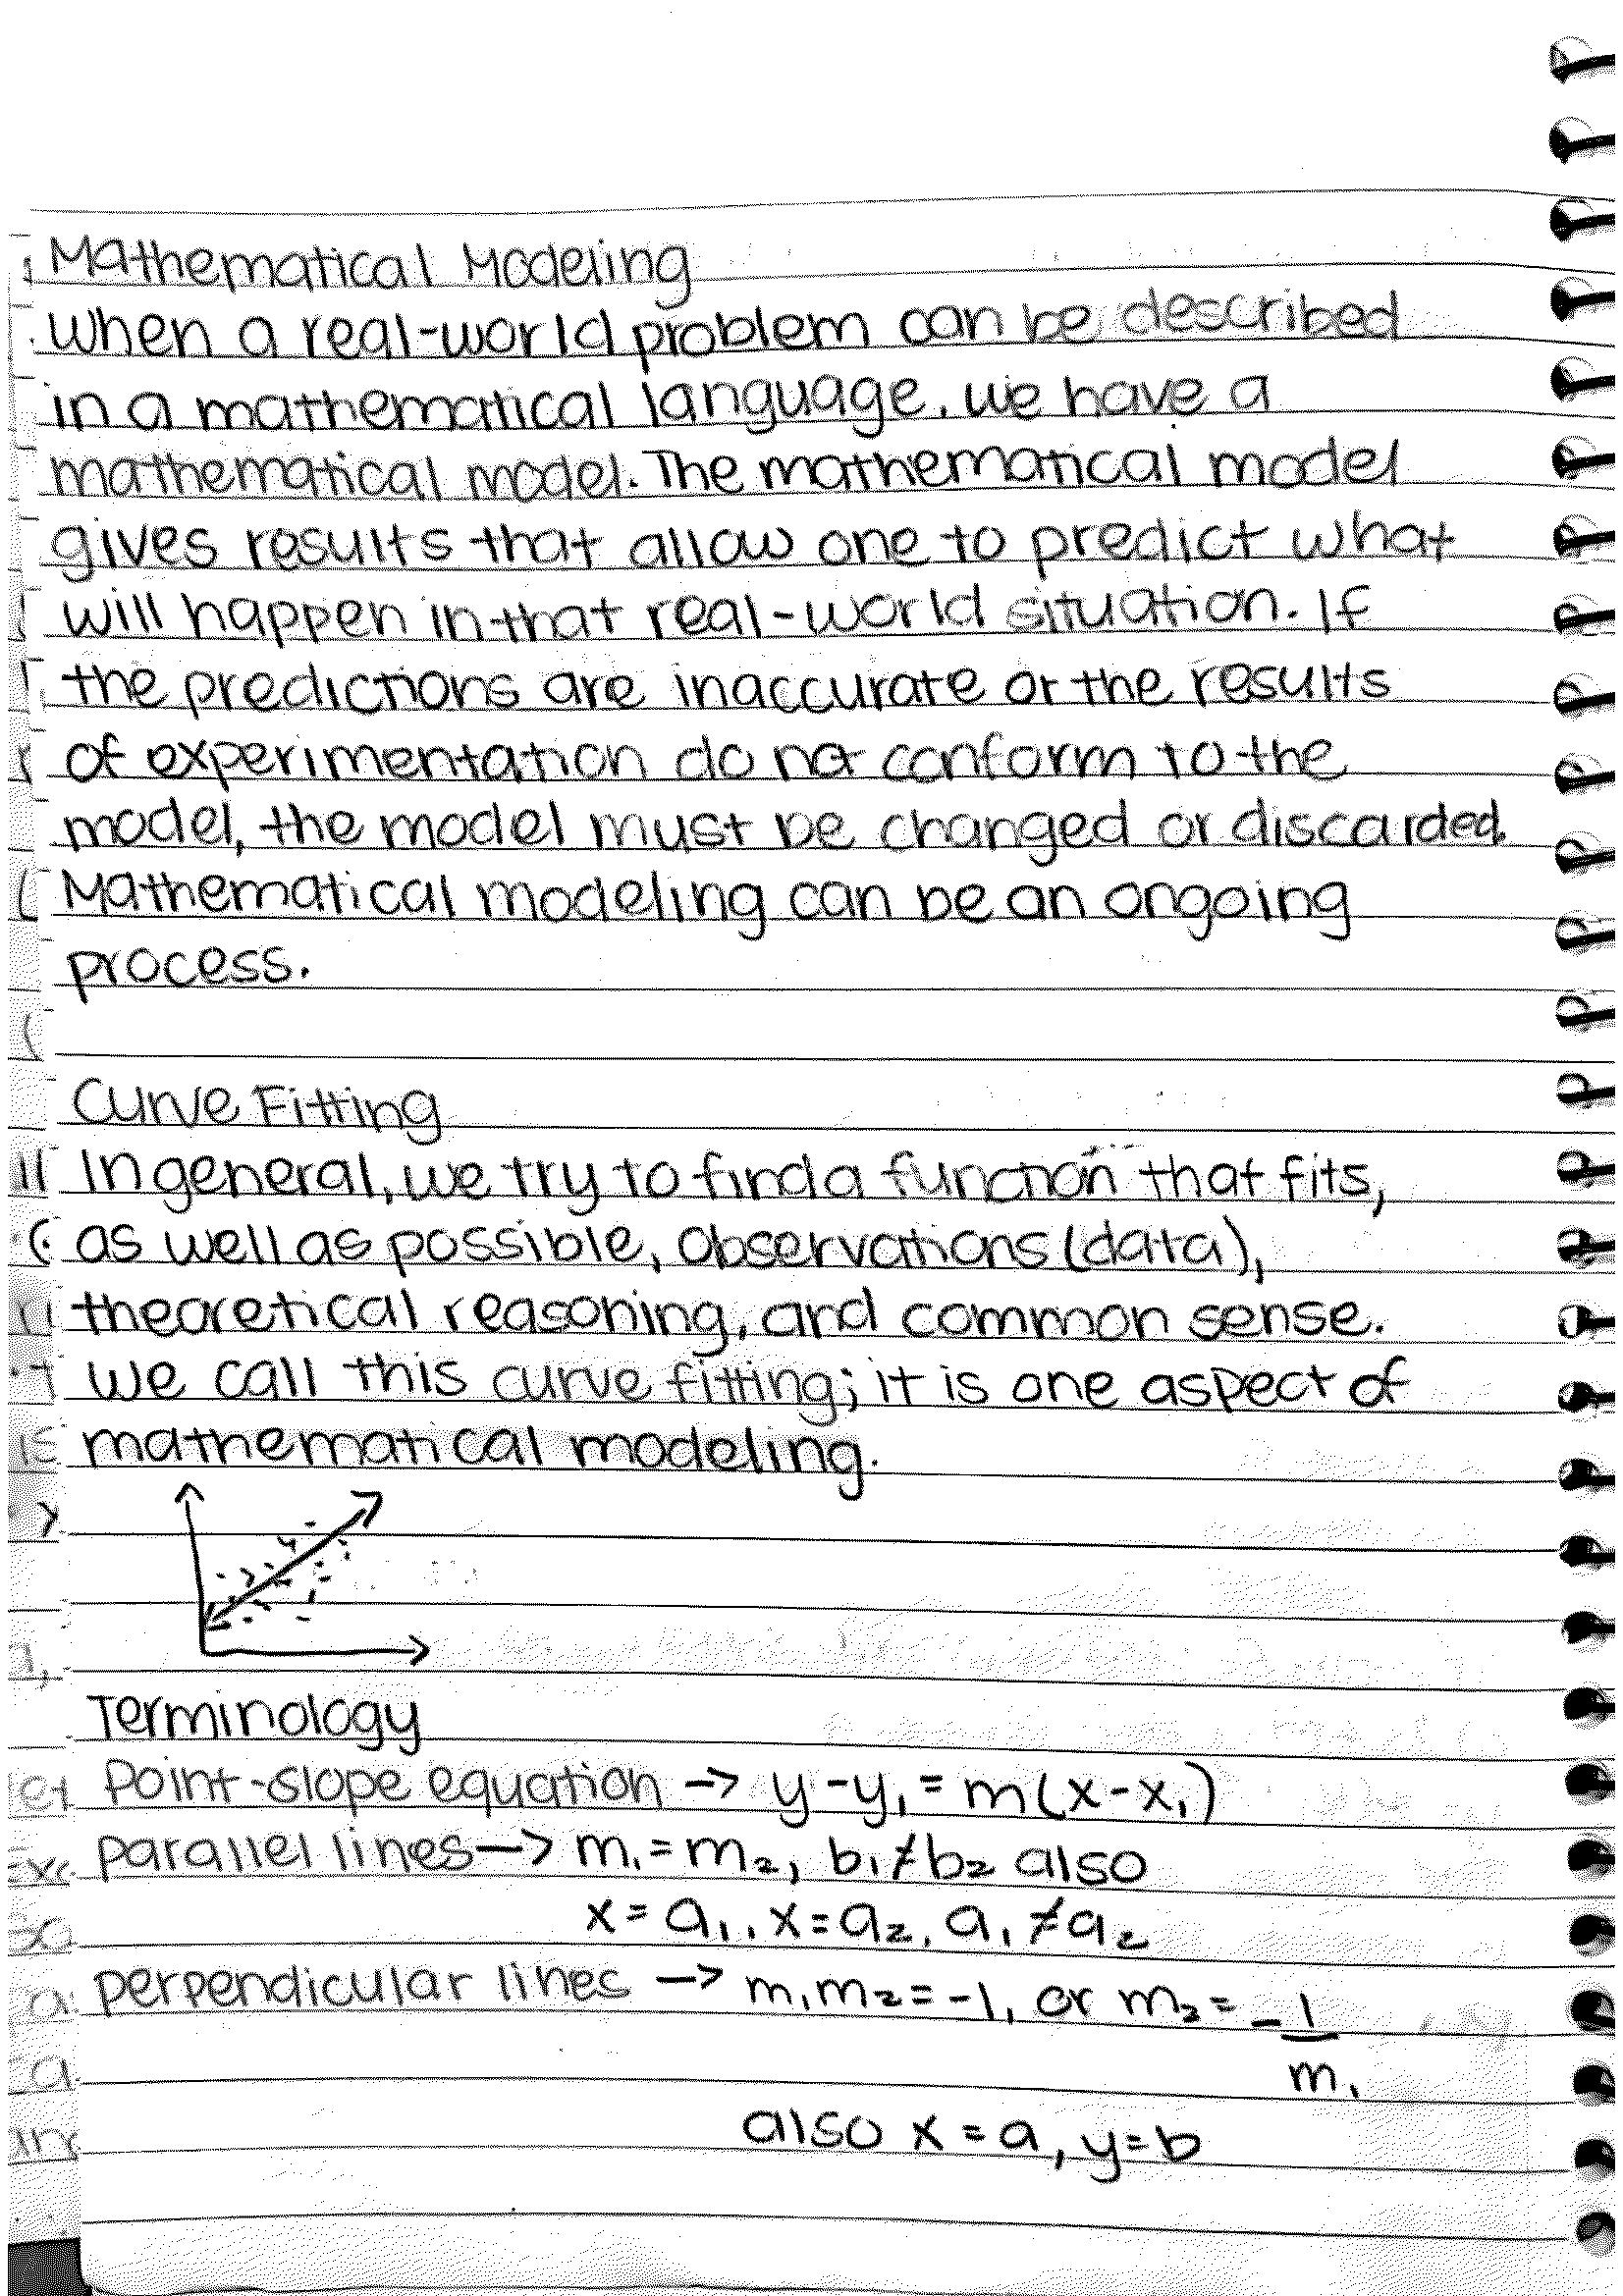 Mathematical Modeling
When a real-world problem can be described
in a mathematical language, we have a
mathematical model. The mathematical model
gives results that allow one to predict what
will happen in that real-world situation. If
the predictions are inaccurate or the results
of experimentation do not conform to the
model, the model must be changed or discarded.
Mathematical modeling can be an ongoing
process.
Curve Fitting
In general, we try to find a function that fits,
as well as possible, observations (data),
theoretical reasoning, and common sense.
We call this curve fitting; it is one aspect of
mathematical modeling.
Terminology
Point-slope equation → y - y₁ = m(x - x₁)
parallel lines → m₁ = m₂, b₁ ≠ b₂ also
x = a₁, x = a₂, a₁ ≠ a₂
perpendicular lines → m₁m₂ = -1, or m₂ = -1/m₁
also x = a, y = b